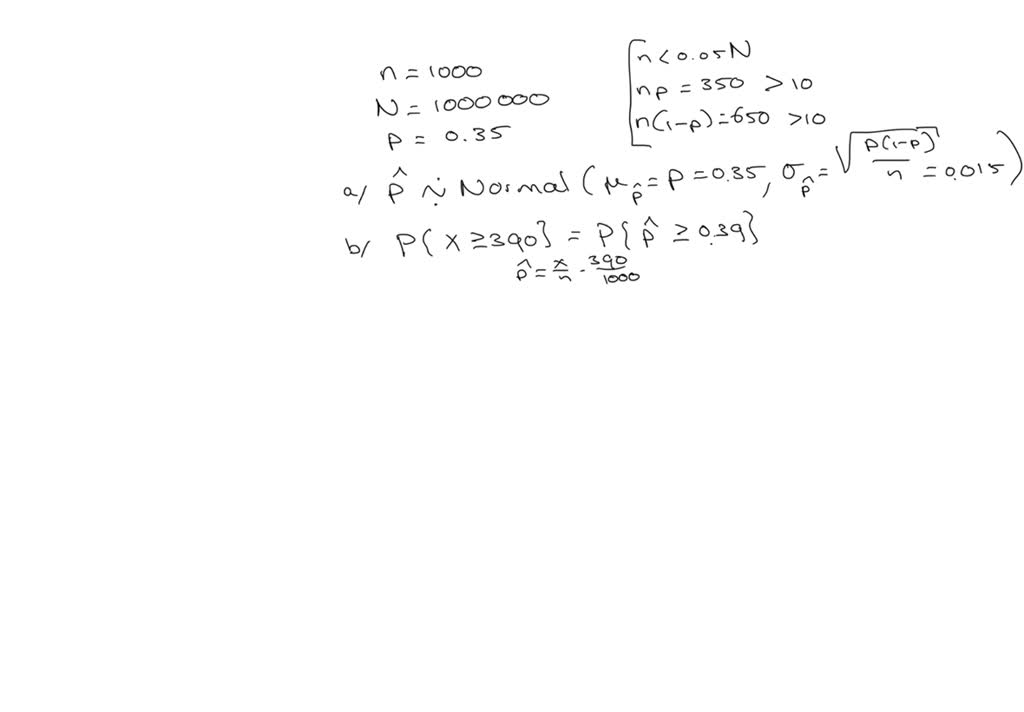 n = 1000
N = 1000 000
p = 0.35
n < 0.05N
np = 350 > 10
n(1-p) = 650 > 10
a/ p̂ ∻ Normal ( μ_p̂ = p = 0.35, σ_p̂ = √(p(1-p)/n) = 0.015 )
b/ P{ X ≥ 390} = P{ p̂ ≥ 0.39}
p̂ = x/n - 390/1000